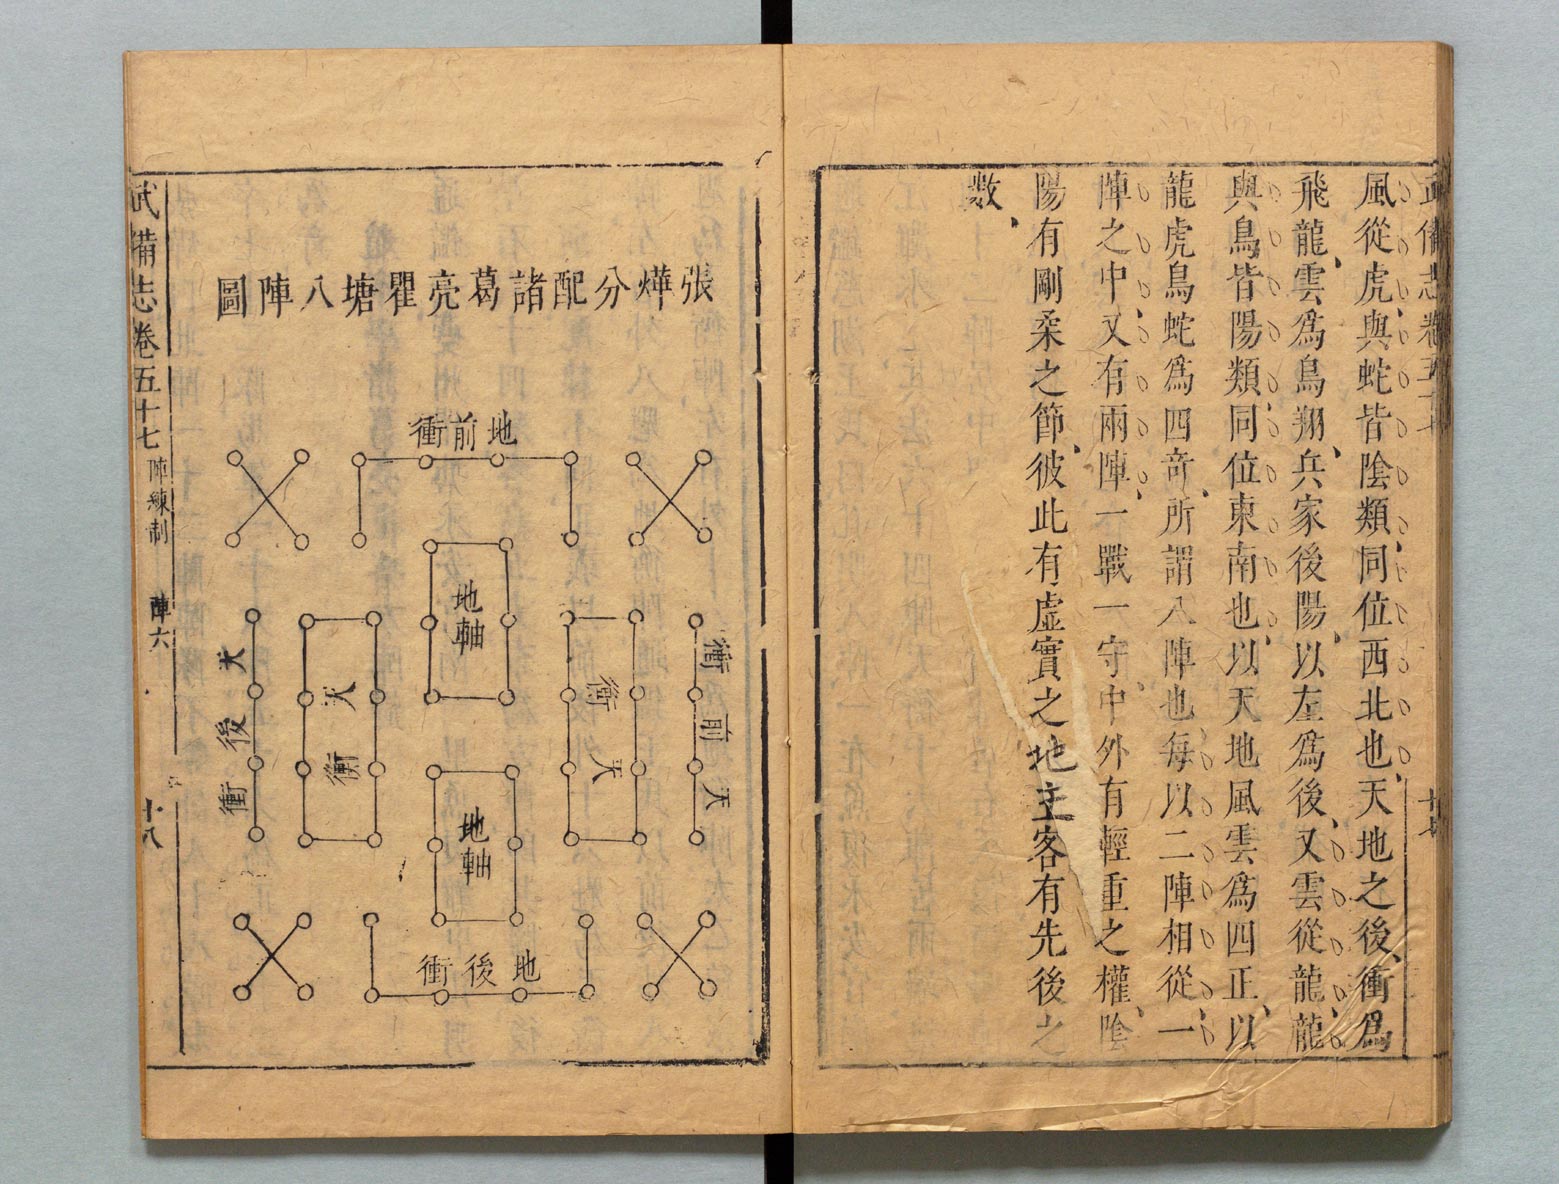 武備志卷五十七
十七
風從虎、與蛇皆陰類、同位西北也、天地之後、衝爲
飛龍、雲爲鳥翔、兵家後陽、以左爲後、又雲從龍、龍
與鳥皆陽類、同位東南也、以天地風雲爲四正、以
龍虎鳥蛇爲四奇、所謂八陣也、每以二陣相從、一
陣之中、又有兩陣、一戰一守、中外有輕重之權、陰
陽有剛柔之節、彼此有虛實之地、主客有先後之
數、
張燁分配諸葛亮瞿塘八陣圖
地前衝
地軸
衝前天
衝天
天衝
天後衝
地軸
地後衝
武備志卷五十七 陣練制 陣六 十八